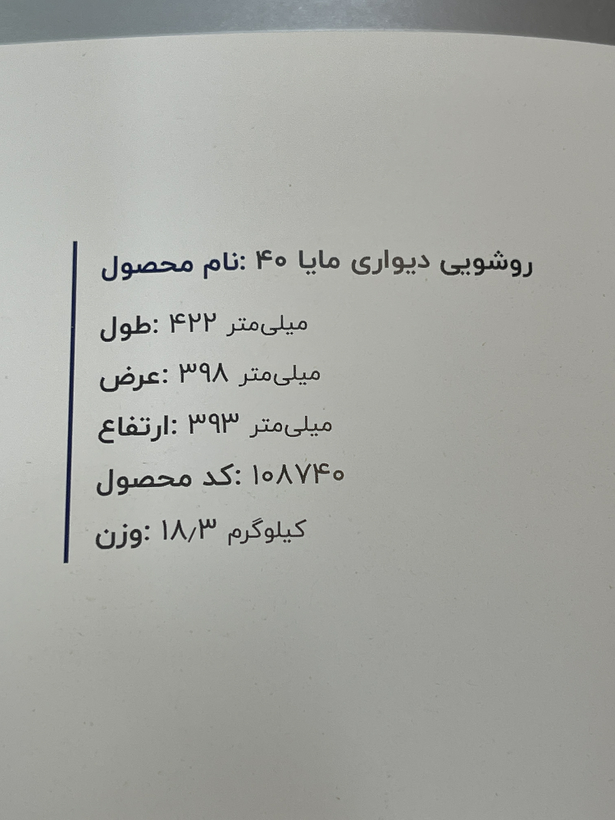 نام محصول: روشویی دیواری مایا ۴۰
طول: ۴۲۲ میلی‌متر
عرض: ۳۹۸ میلی‌متر
ارتفاع: ۳۹۳ میلی‌متر
کد محصول: ۱۰۸۷۴۰
وزن: ۱۸٫۳ کیلوگرم